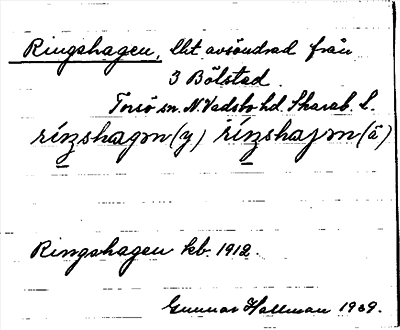 Ringshagen, lht avsöndrad från
3 Bölstad.
Torsö sn. N. Vadsbo hd. Skarab. L.
rínzshagən (y) rínzshajən (ä)
Ringshagen kb. 1912.
Gunnar Hallman 1939.